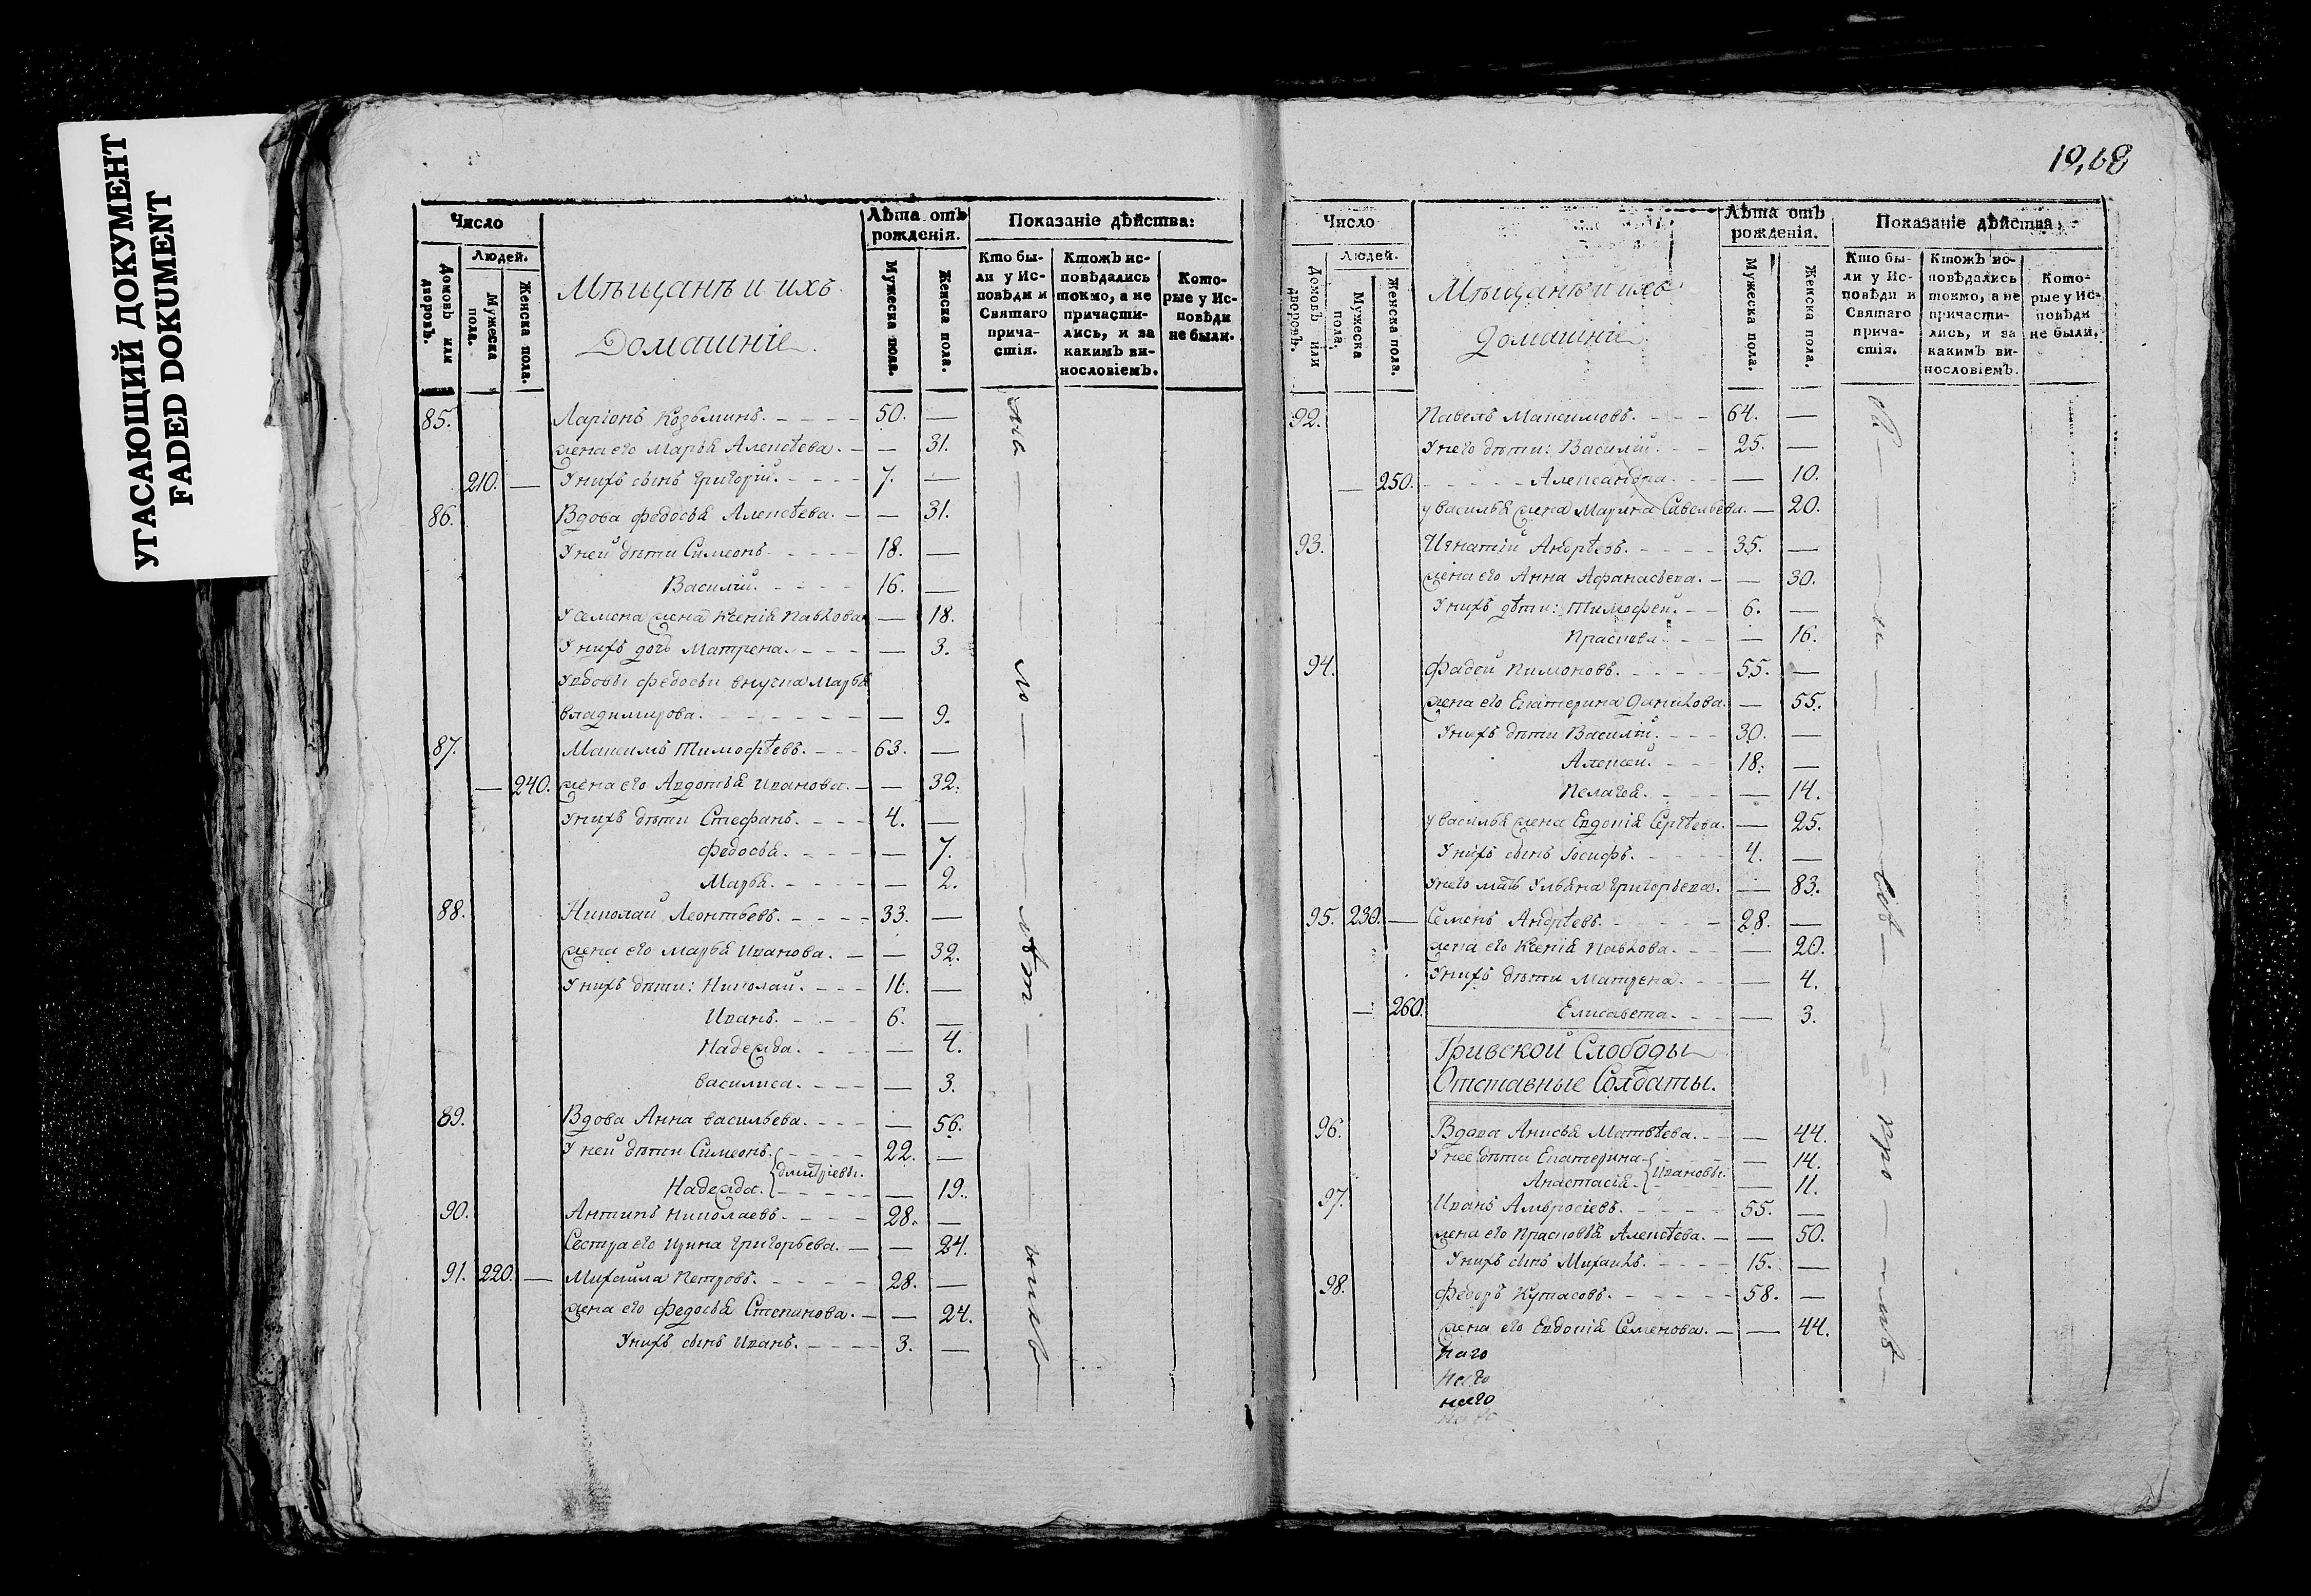 УГАСАЮЩИЙ ДОКУМЕНТ
FADED DOKUMENT
Число
Людей.
Домовъ или дворовъ.
Мужеска пола.
Женска пола.
Мѣщанѣ и ихъ
Домашніе.
Лѣта отъ рожденія.
Мужеска пола.
Женска пола.
Показаніе дѣйства:
Кто были у Исповѣди и Святаго причастія.
Ктожъ исповѣдались токмо, а не причастились, и за какимъ винословіемъ.
Которые у Исповѣди не были.
85. Ларіонъ Козьминъ. 50. —
жена его Марья Алексѣева. — 31.
210. — У нихъ сынъ Григорій. 7. —
86. Вдова Федосья Алексѣева. — 31.
У ней дѣти Симеонъ 18. —
Василій. 16. —
У Семена жена Ксенія Павлова — 18.
У нихъ дочь Матрена. — 3.
У вдовы Федосьи внучка Марья
Владимирова. — 9.
87. Максимъ Тимофѣевъ. 63. —
— 240. жена его Авдотья Иванова. — 32.
У нихъ дѣти Стефанъ. 4. —
Федосья. — 7.
Марья. — 2.
88. Николай Леонтьевъ. 33. —
жена его Марья Иванова. — 32.
У нихъ дѣти: Николай. 11. —
Иванъ. 6. —
Надежда. — 4.
Василиса. — 3.
89. Вдова Анна Васильева. — 56.
У ней дѣти Симеонъ. 22. —
Дмитріевы.
Надежда. — 19.
90. Антипъ Николаевъ. 28. —
Сестра его Ирина Григорьева. — 24.
91. 220. — Михайла Петровъ. 28. —
жена его Федосья Степанова. — 24.
У нихъ сынъ Иванъ. 3. —
19,68
Число
Людей.
Домовъ или дворовъ.
Мужеска пола.
Женска пола.
Мѣщанѣ и ихъ
Домашніе
Лѣта отъ рожденія.
Мужеска пола.
Женска пола.
Показаніе дѣйства:
Кто были у Исповѣди и Святаго причастія.
Ктожъ исповѣдались токмо, а не причастились, и за какимъ винословіемъ.
Которые у Исповѣди не были.
92. Павелъ Максимовъ. 64. —
У него дѣти: Василій. 25. —
— 250. Александра. — 10.
У Василья жена Марина Савельева. — 20.
93. Игнатій Андрѣевъ. 35. —
жена его Анна Афанасьева. — 30.
У нихъ дѣти: Тимофей. 6. —
Прасковья. — 16.
94. Фадей Пимоновъ. 55. —
жена его Екатерина Данилова. — 55.
У нихъ дѣти Василій. 30. —
Алексей. 18. —
Пелагея. — 14.
У Василья жена Евдокія Сергѣева. — 25.
У нихъ сынъ Іосифъ. 4. —
У него мать Ульяна Григорьева. — 83.
95. 230. — Семенъ Андрѣевъ. 28. —
жена его Ксенія Павлова. — 20.
У нихъ дѣти Матрена. — 4.
— 260. Елисавета. — 3.
Гривской Слободы
Отставные Солдаты.
96. Вдова Анисья Матвѣева. — 44.
У нее дѣти Екатерина — 14.
Ивановы.
Анастасія — 11.
97. Иванъ Амвросіевъ. 55. —
жена его Прасковья Алексѣева. — 50.
У нихъ сынъ Михаилъ. 15. —
98. Федоръ Кутасовъ. 58. —
жена его Евдокія Семенова. — 44.